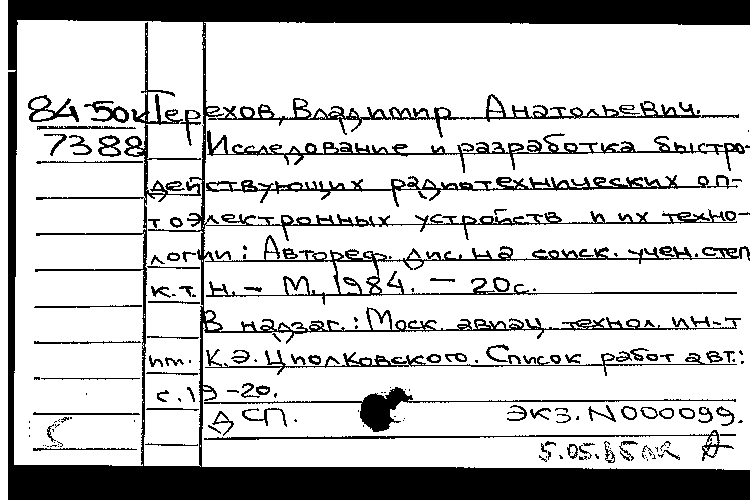 84-50к Терехов, Владимир Анатольевич.
7388 Исследование и разработка быстро-
действующих радиотехнических оп-
тоэлектронных устройств и их техно-
логии: Автореф. дис. на соиск. учен. степ
к.т.н. - М., 1984. - 20с.
В надзаг.: Моск. авиац. технол. ин-т
им. К.Э. Циолковского. Список работ авт.:
с.19-20.
ДСП. ЭКЗ. N000099.
5.05.85